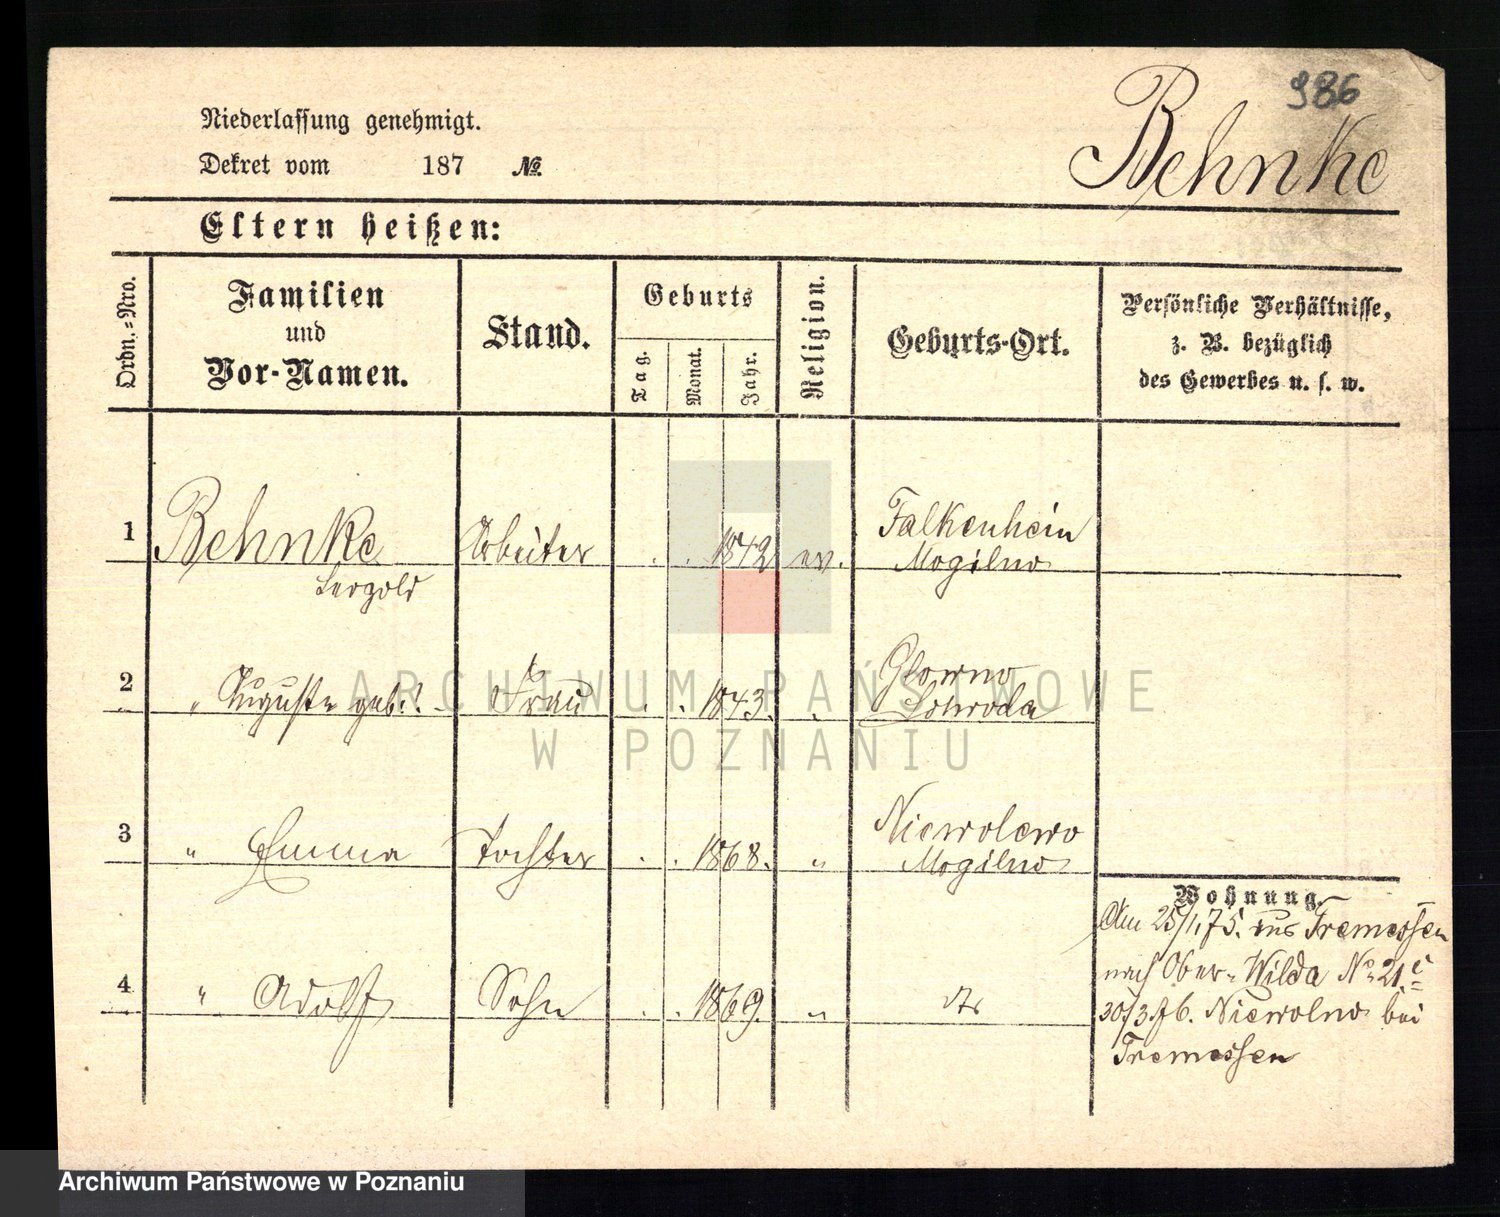 986
Niederlassung genehmigt.
Behnke
Dekret vom 187 №
Eltern heißen:
Ordn.=Nro.
Familien
und
Vor-Namen.
Stand.
Geburts
Tag.
Monat.
Jahr.
Religion.
Geburts-Ort.
Persönliche Verhältnisse,
z. B. bezüglich
des Gewerbes u. s. w.
1 Behnke Arbeiter . . 1842 ev. Falkenhein
Mogilno
Leopold
2 " Auguste geb. Frau . . 1843. " Glowno
Schroda
3 " Emma Tochter . . 1868. " Niewolewo
Mogilno
4 " Adolf Sohn . . 1869. "
Wohnung.
Am 25/1.75. aus Tremessen
nach Ober-Wilda No 21c
30/3.76. Niewolno bei
Tremessen
ARCHIWUM PAŃSTWOWE
W POZNANIU
Archiwum Państwowe w Poznaniu